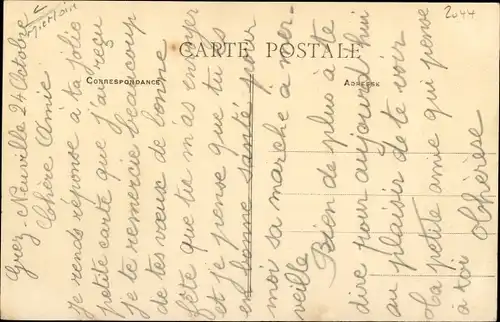 Maine-et-Loire
2044
CARTE POSTALE
CORRESPONDANCE
ADRESSE
Grez-Neuville 24 Octobre
Chère Amie
Je rends réponse à ta jolie
petite carte que j'ai reçu
Je te remercie beaucoup
de tes vœux de bonne
fête que tu m'as envoyer
et je pense que tu es
en bonne santé pour
moi sa marche à mer-
veille Bien de plus à te
dire pour aujourd'hui
au plaisir de te voir
Ta petite amie qui pense
à toi Thérèse